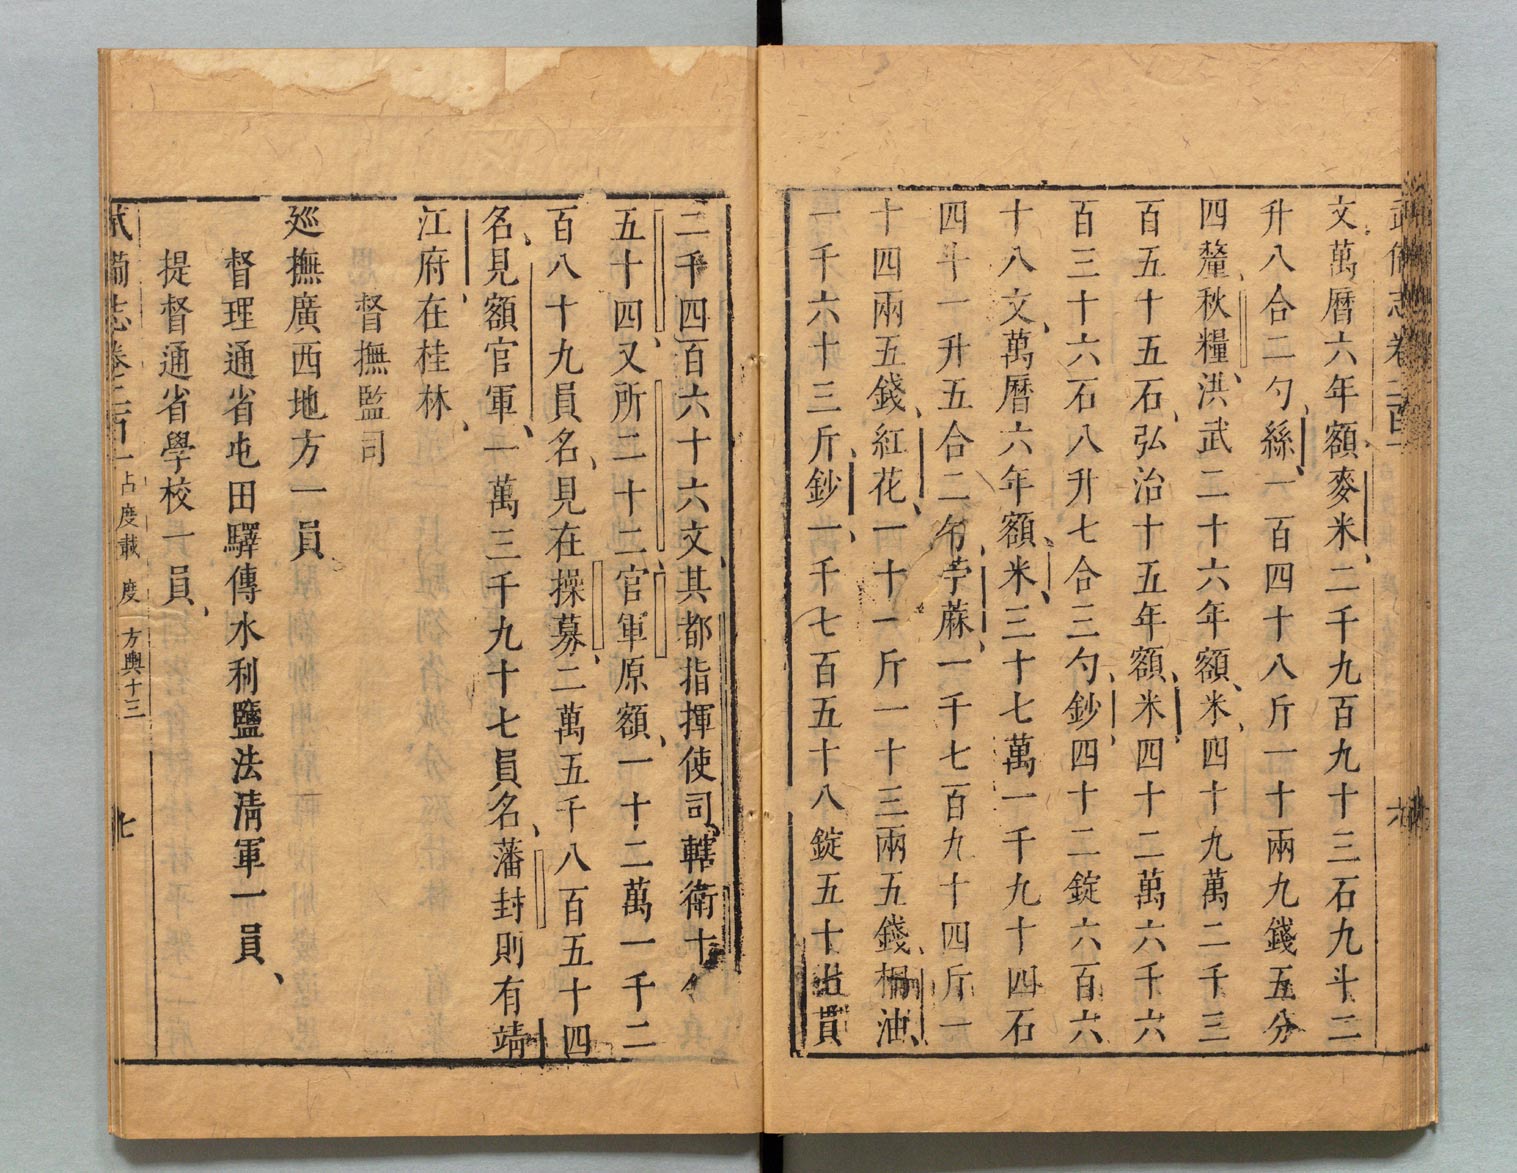 武備志卷二百一
文萬曆六年額麥米二千九百九十三石九斗二
升八合二勺絲一百四十八斤一十兩九錢五分
四釐秋糧洪武二十六年額米四十九萬二千三
百五十五石弘治十五年額米四十二萬六千六
百三十六石八升七合三勺鈔四十二錠六百六
十八文萬曆六年額米三十七萬一千九十四石
四斗一升五合二勺苧蔴一千七百九十四斤一
十四兩五錢紅花一十一斤一十三兩五錢桐油
一千六十三斤鈔一千七百五十八錠五十貫
二千四百六十六文其都指揮使司轄衛十
五十四又所二十二官軍原額一十二萬一千二
百八十九員名見在操募二萬五千八百五十四
名見額官軍一萬三千九十七員名藩封則有靖
江府在桂林
督撫監司
廵撫廣西地方一員
督理通省屯田驛傳水利鹽法清軍一員
提督通省學校一員
武備志卷二百一 占度載 度 方輿十三 七